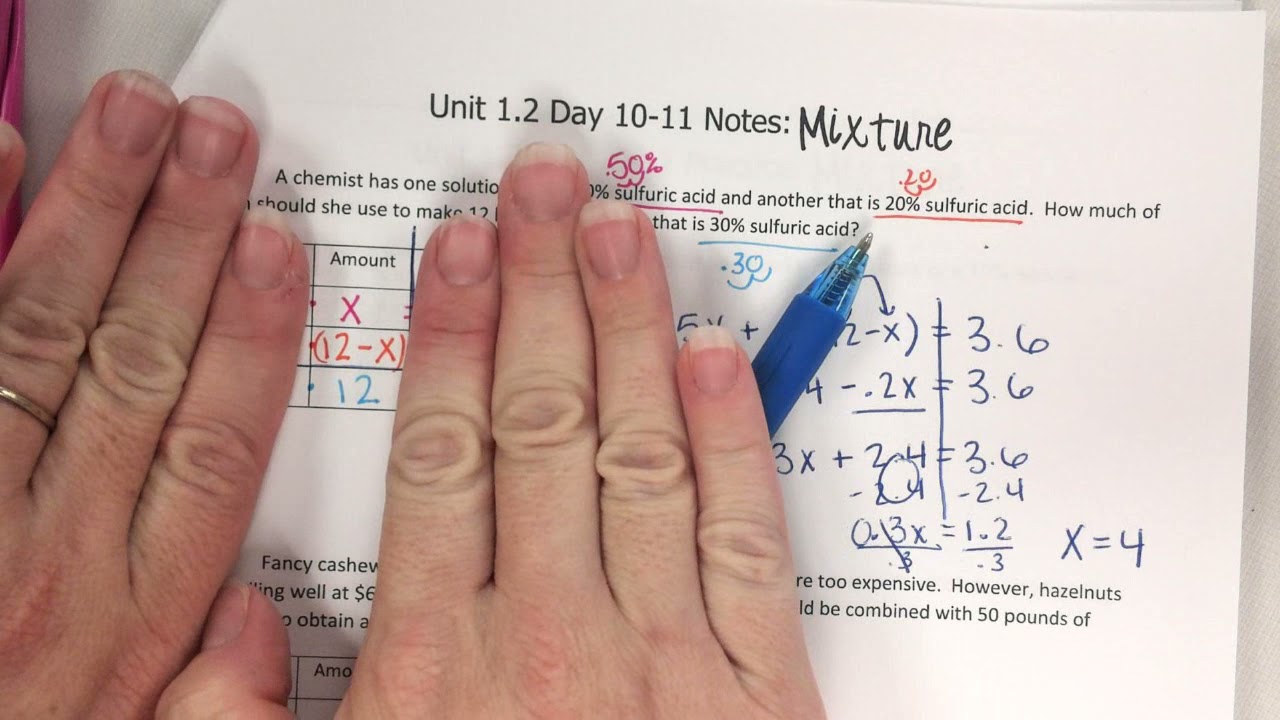 Unit 1.2 Day 10-11 Notes: Mixture
.50% .20
A chemist has one solutio 0% sulfuric acid and another that is 20% sulfuric acid. How much of
should she use to make 12 that is 30% sulfuric acid?
.30
Amount
x
(12-x)
12
.5x + 2-x) = 3.6
4 - .2x = 3.6
3x + 2.4 = 3.6
-2.4 -2.4
0.3x = 1.2 X = 4
.3 .3
Fancy cashew re too expensive. However, hazelnuts
ling well at $6 ld be combined with 50 pounds of
o obtain a
Amo